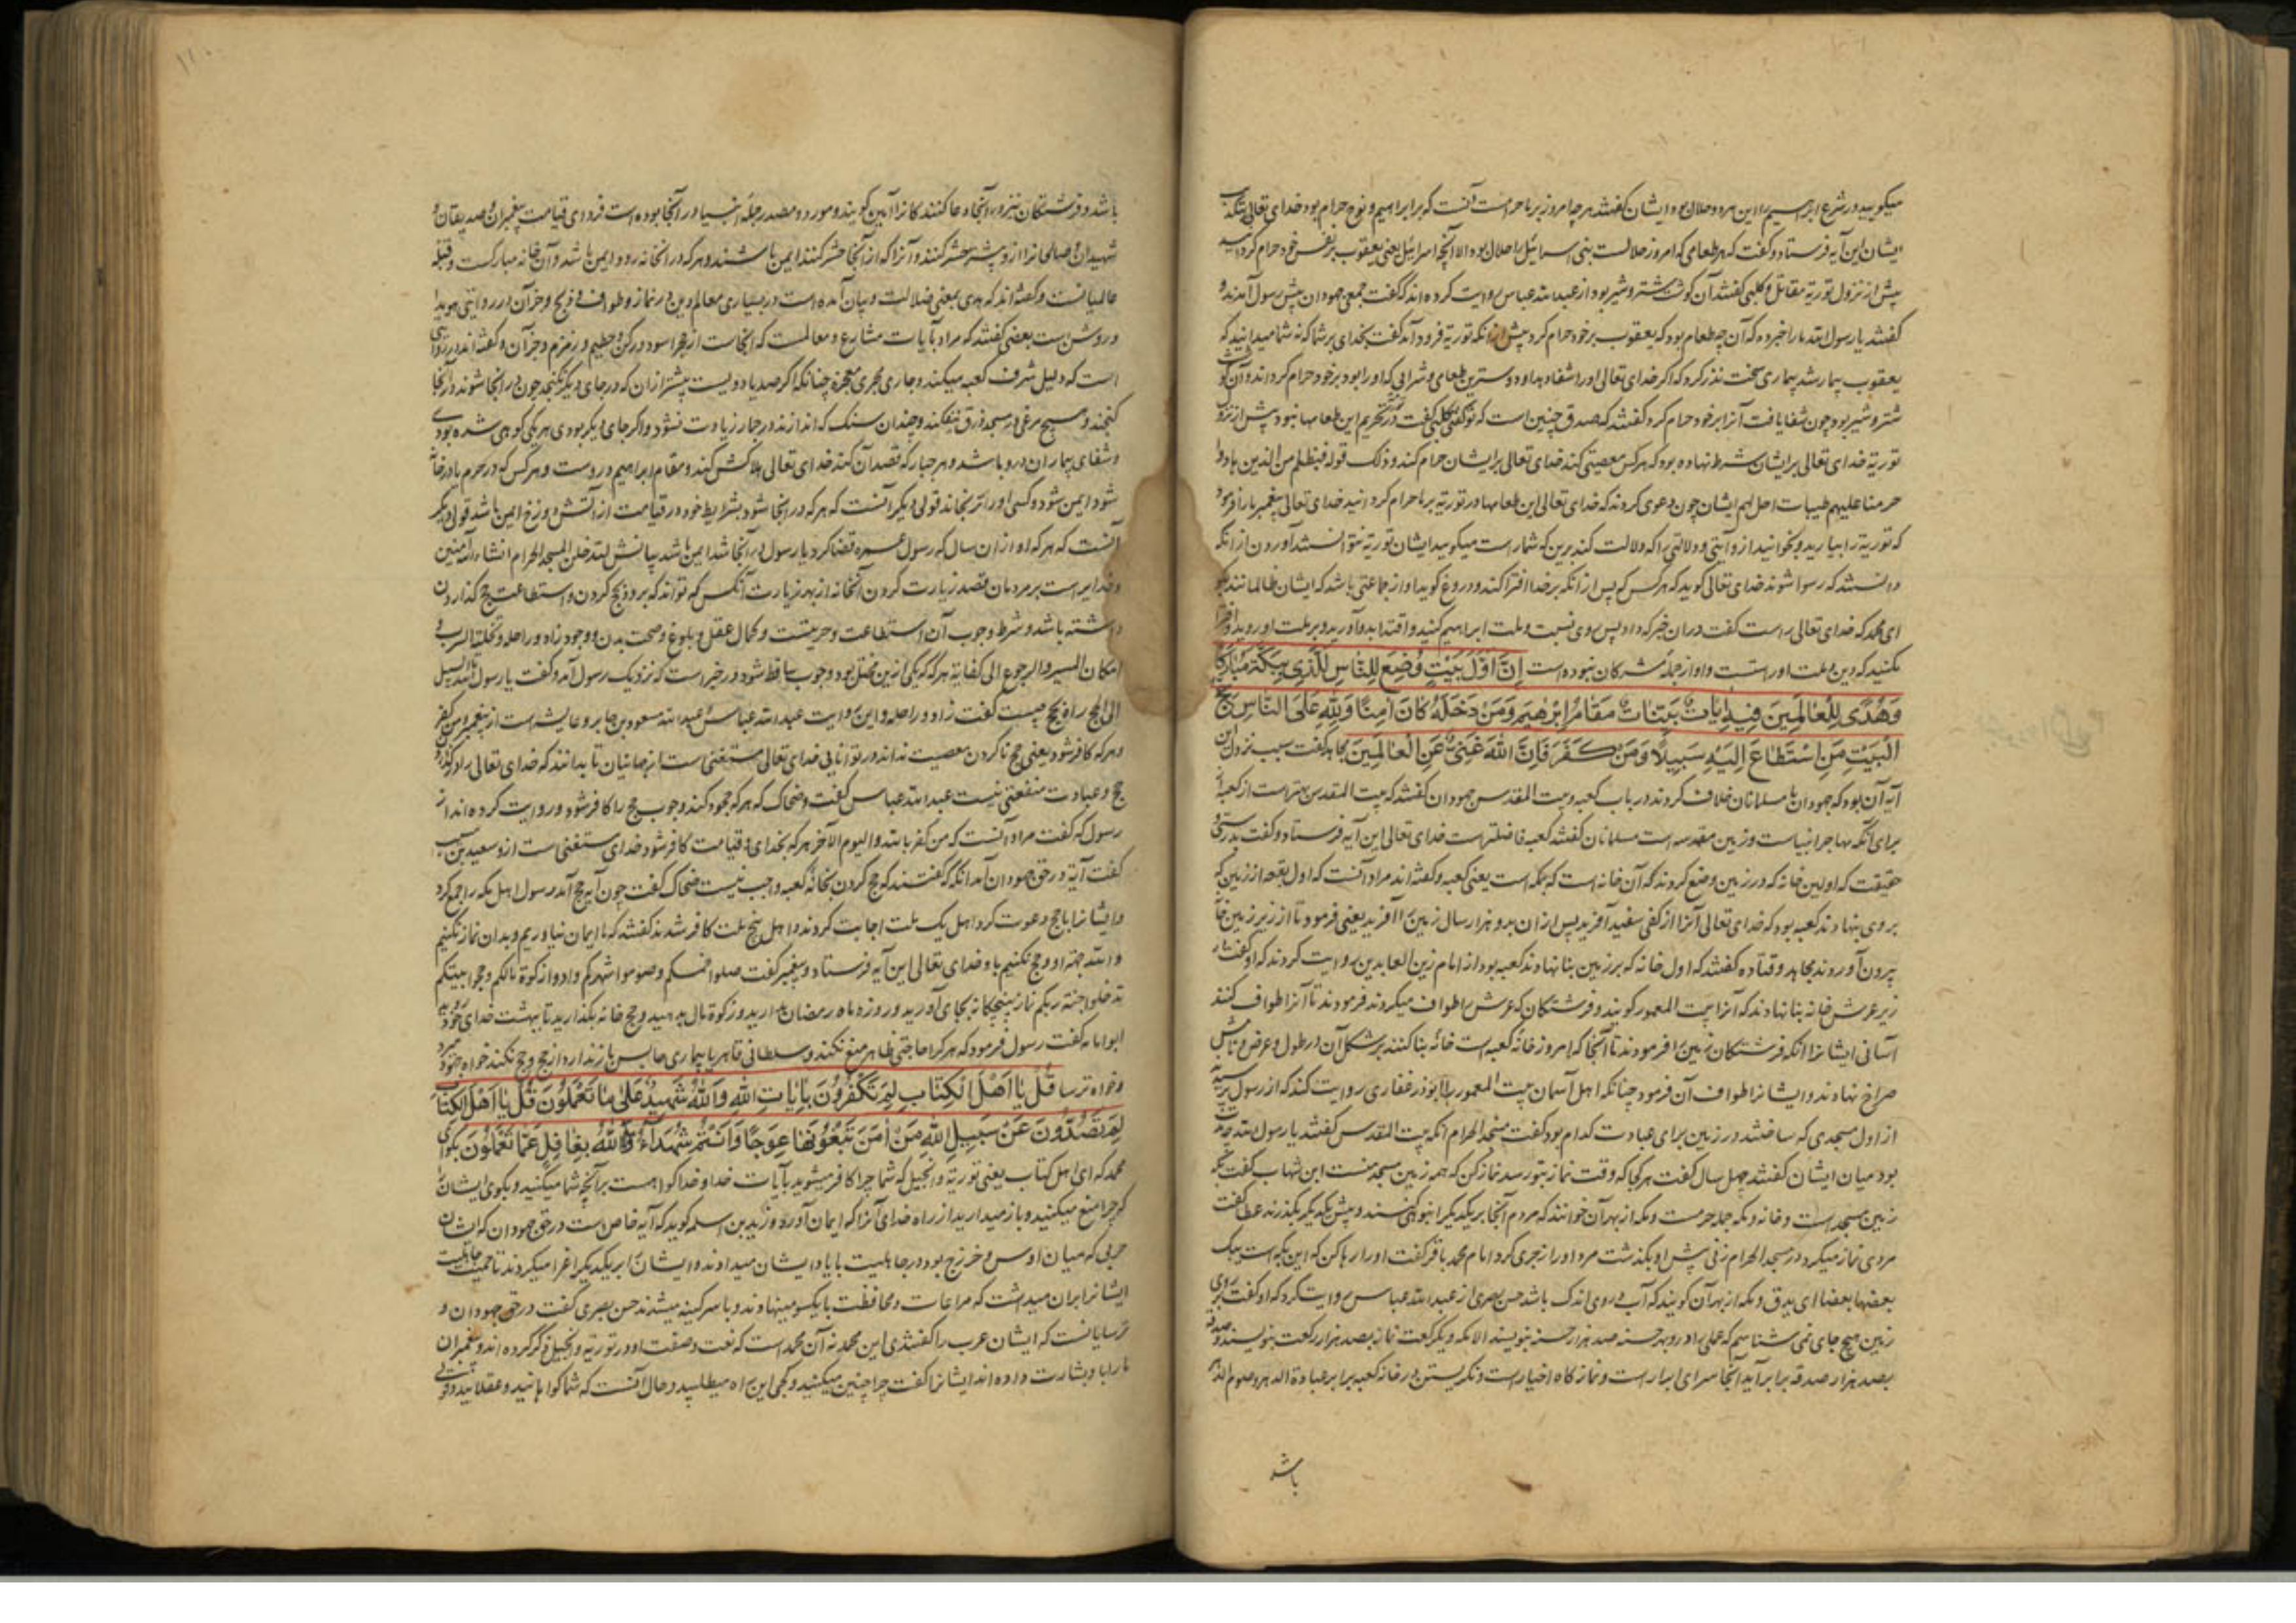 میکویید در شرع ابرهیم این هر دو حلال بود ایشان کفتند هرچه امروز بر ما حرامست آنست که بر ابراهیم و نوح حرام بود خدای تعالی بتکذیب
ایشان این آیه فرستاد و کفت که هر طعامی که امروز حلالست بنی اسرائیل را حلال بود الا آنچه اسرائیل یعنی یعقوب بر نفس خود حرام کرد
پیش از نزول توریة مقاتل و کلبی کفتند آن کوشت شتر و شیر بود از عبدالله عباس روایت کرده اند که کفت جمعی جهودان پیش رسول آمدند و
کفتند یا رسول الله ما را خبر ده که آن چه طعام بود که یعقوب بر خود حرام کرد پیش از انکه توریة فرود آمد کفت بخدای بر شما که نه شما میدانید که
یعقوب بیمار شد بیماری سخت نذر کرد که اکر خدای تعالی او را شفا دهد او دوسترین طعامی و شرابی که او را بود بر خود حرام کرداند و آن کوشت
شتر و شیر بود چون شفا یافت آنرا بر خود حرام کرد کفتند که صدق چنین است که تو کفتی کلبی کفت در تحریم این طعامها نبود پیش از نزول
توریة خدای تعالی بر ایشان شرط نهاده بود که هر کس معصیتی کند خدای تعالی بر ایشان حرام کند و ذلک قوله فبظلم من الذین هادوا
حرمنا علیهم طیبات احل لهم ایشان چون دعوی کردند که خدای تعالی این طعامها در توریة بر ما حرام کردانید خدای تعالی پیغمبر ما را فرمود
که توریة را بیارید و بخوانید از و آیتی و دلالتی را که دلالت کند برین که شمار است میکویید ایشان توریة نتوانستند آوردن از انکه
دانستند که رسوا شوند خدای تعالی کوید که هر کس که پس از انکه بر خدا افترا کند و دروغ کوید او از جماعتی باشد که ایشان ظالمانند بکو
ای محمد که خدای تعالی راست کفت در ان خبر که داد پس روی نسبت و ملت ابراهیم کنید و اقتدا بدو آورید و بر ملت او روید و
نکنید که دین و ملت او راستست و او از جملۀ مشرکان نبوده است اِنَّ اَوَّلَ بَیْتٍ وُضِعَ لِلنَّاسِ لَلَّذِی بِبَکَّةَ مُبَارَکًا
وَهُدًی لِلْعَالَمِینَ فِیهِ اٰیَاتٌ بَیِّنَاتٌ مَقَامُ اِبْرٰهِیمَ وَمَنْ دَخَلَهُ کَانَ اٰمِنًا وَلِلّٰهِ عَلَی النَّاسِ حِجُّ
الْبَیْتِ مَنِ اسْتَطَاعَ اِلَیْهِ سَبِیلًا وَمَنْ کَفَرَ فَاِنَّ اللّٰهَ غَنِیٌّ عَنِ الْعَالَمِینَ مجاهد کفت سبب نزول این
آیه آن بود که جهودان با مسلمانان خلاف کردند در باب کعبه و بیت المقدس جهودان کفتند که بیت المقدس بهتر است از کعبه از
برای آنکه مهاجر انبیاست و زمین مقدسه است مسلمانان کفتند کعبه فاضلتر است خدای تعالی این آیه فرستاد و کفت بدرستی و
حقیقت که اولین خانه که در زمین وضع کردند که آن خانه است که بمکه است یعنی کعبه و کفته اند مراد آنست که اول بقعه از زمین که
بر وی بنهادند کعبه بود که خدای تعالی آنرا از کفی سفید آفرید پس از ان بدو هزار سال زمین را آفرید یعنی فرمود تا از زیر زمین
بیرون آوردند مجاهد و قتاده کفتند که اول خانه که بر زمین بنا نهادند کعبه بود از امام زین العابدین روایت کردند که او کفت
زیر عرش خانه بنا نهادند که آنرا بیت المعمور کویند و فرشتکان که عرش را طواف میکردند فرمودند تا آنرا طواف کنند
آسانی ایشانرا انکه فرشتکان زمین را فرمودند تا آنجا که امروز خانۀ کعبه است خانۀ بنا کنند بر شکل آن در طول و عرض و نامش
صراح نهادند و ایشانرا طواف آن فرمود چنانکه اهل آسمان بیت المعمور را ابوذر غفاری روایت کند که از رسول پرسید
از اول مسجدی که ساختند در زمین برای عبادت کدام بود کفت مسجد الحرام آنکه بیت المقدس کفتند یا رسول الله چه مدت
بود میان ایشان کفتند چهل سال کفت هر کجا که وقت نماز بتو رسد نماز کن که همه زمین مسجد منست ابن شهاب کفت
زمین مسجد است و خانه و مکه جمله حرمست و مکه از بهر آن خوانند که مردم آنجا بر یکدیکر انبوهی کنند و پیش یکدیکر بکذرند عطا کفت
مردی نماز میکرد در مسجد الحرام زنی پیش او بکذشت مرد او را زجری کرد امام محمد باقر کفت او را رها کن که این بکه است یبک
بعضها بعضا ای یدق و مکه از بهر آن کویند که آب در وی اندک باشد حسن بصری از عبدالله عباس روایت کرد که او کفت بر روی
زمین هیچ جای نمی شناسم که عملی را در و بهر حسنه صد هزار حسنه بنویسند الا مکه و یک رکعت نماز بصد هزار رکعت بنویسند و صدقه
بصد هزار صدقه برابر آید آنجا سرای ابرار است و نماز کاه اخیار است و نکریستن در خانه کعبه برابر عبادة الدهر و صوم الدهر
باشد
باشد و فرشتکان نیز بر آنجا دعا کنند کانرا آمین کویند و مورد و مصدر جملۀ انبیا در آنجا بوده است فردای قیامت پیغمبران و صدیقان و
شهیدان و صالحانرا از و بیشتر حشر کنند و آنرا که از آنجا حشر کنند ایمن باشند و هر که در انخانه رود ایمن باشد و آن خانه مبارکست و قبلۀ
عالمیانست و کفته اند که هدی بمعنی ضلالت و بیان آمده است در بسیاری معالم دین در نماز و طواف و ذبح و جز آن در روایتی هویدا
و روشن است بعضی کفتند که مراد بآیات مشارع و معالمست که انجاست از حجر اسود و رکن و حطیم و زمزم و جز آن و کفته اند
است که دلیل شرف کعبه میکند و جاری مجری معجزه چنانکه اکر صد یا دویست بیشتر از ان که در جای دیکر نکنجد چون در آنجا شوند در آنجا
کنجند و هیچ مرغی در مسجد ذرق نیفکند و چندان سنک که اندازند در جمار زیادت نشود و اکر جای دیکر بودی هر یکی کوهی شده بودی
و شفای بیماران درو باشد و هر جبار که قصد آن کند خدای تعالی هلاکش کند و مقام ابراهیم دروست و هر کس که در حرم یا در خانه
شود ایمن شود و کسی او را نرنجاند قولی دیکر آنست که هر که در انجا شود بشرایط خود در قیامت از آتش دوزخ ایمن باشد قولی دیکر
آنست که هر که او از ان سال که رسول عمره قضا کرد با رسول در آنجا شد ایمن باشد بیانش لتدخلن المسجد الحرام انشاء الله آمنین
و خدایراست بر مردمان قصد زیارت کردن آنخانه از بهر زیارت آنکس که تواند که برود حج کردن و استطاعت حج کذاردن
داشته باشد و شرط وجوب آن استطاعت و حریتست و کمال عقل و بلوغ و صحت بدن و وجود زاد و راحله و تخلیة السرب و
امکان المسیر و الرجوع الی کفایة هر که که یکی ازین مختل بود وجوب ساقط شود در خبر است که نزدیک رسول آمد و کفت یا رسول الله ما السبیل
الی الحج راه حج چیست کفت زاد و راحله و این روایت عبدالله عباس و عبدالله مسعود و جابر و عایشه است از پیغمبر و من کفر
و هر که کافر شود یعنی حج نا کردن معصیت نداند در توانایی خدای تعالی مستغنی است از جهانیان تا بدانند که خدای تعالی را در کذاردن
حج و عبادت منفعتی نیست عبدالله عباس کفت و ضحاک که هر که جحود کند وجوب حج را کافر شود و روایت کرده اند از
رسول که کفت مراد آنست که من کفر بالله و الیوم الآخر هر که بخدای و قیامت کافر شود خدای مستغنی است ازو سعید بن مسیب
کفت آیة در حق جهودان آمد آنکه که گفتند که حج کردن بخانۀ کعبه واجب نیست ضحاک کفت چون آیه حج آمد رسول اهل مکه را جمع کرد
و ایشانرا با حج دعوت کرد اهل یک ملت اجابت کردند و اهل پنج ملت کافر شدند کفتند که ما ایمان نیاوریم و بدان نماز نکنیم
و حج نکنیم با و خدای تعالی این آیه فرستاد و پیغمبر کفت صلوا خمسکم و صوموا شهرکم و ادوا زکوة مالکم و حجوا بیتکم
تدخلوا جنة ربکم نماز پنجکانه بجای آورید و روزه ماه رمضان بدارید و زکوة مال بدهید و حج خانه بکذارید تا ببهشت خدای خود روید
ابو امامه کفت رسول فرمود که هر کرا حاجتی ظاهر منع نکند و سلطانی قاهر یا بیماری حابس باز ندارد از حج و حج نکند خواه جهود میرد
و خواه ترسا قُلْ یَا اَهْلَ الْکِتَابِ لِمَ تَکْفُرُونَ بِاٰیَاتِ اللّٰهِ وَاللّٰهُ شَهِیدٌ عَلٰی مَا تَعْمَلُونَ قُلْ یَا اَهْلَ الْکِتَابِ
لِمَ تَصُدُّونَ عَنْ سَبِیلِ اللّٰهِ مَنْ اٰمَنَ تَبْغُونَهَا عِوَجًا وَاَنْتُمْ شُهَدَآءُ وَمَا اللّٰهُ بِغَافِلٍ عَمَّا تَعْمَلُونَ بکو ای
محمد که ای اهل کتاب یعنی توریة و انجیل که شما چرا کافر میشوید بآیات خدا و خدا کواهست بر آنچه شما میکنید و بکوی ایشانرا
که چرا منع میکنید و باز میدارید از راه خدای آنرا که ایمان آورد و زید بن اسلم کوید که آیه خاص است در حق جهودان که ایشان
حربی که میان اوس و خزرج بود در جاهلیت با یاد ایشان میدادند و ایشانرا بر یکدیکر اغرا میکردند تا حمیت جاهلیت
ایشانرا بران میداشت که مراعات و محافظت با یکسو مینهادند و با سر کینه میشدند حسن بصری کفت در حق جهودان و
ترسایانست که ایشان عرب را کفتندی این محمد نه آن محمد است که نعت و صفت او در توریة و انجیل ذکر کرده اند و پیغمبران
ما را بدو بشارت داده اند ایشانرا کفت چرا چنین میکنید و کجی این راه میطلبید و حال آنست که شما کواهانید و عقلایید